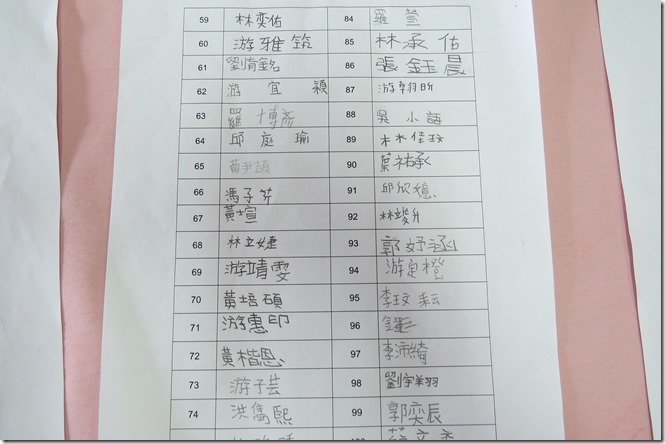 59 林奕佑 84 羅萱
60 游雅筑 85 林承佑
61 劉育銘 86 張鈺晨
62 游宜穎 87 游翔昕
63 羅博彥 88 吳小語
64 邱庭瑜 89 林佳玟
65 黃尹頡 90 葉祐承
66 馮子芹 91 邱欣憶
67 黃塏 92 林竣升
68 林立婕 93 郭妤涵
69 游靖雯 94 游定橙
70 黃培碩 95 李玟耘
71 游惠印 96
72 黃楷恩 97 李沛綺
73 游子芸 98 劉宇翔
74 洪雋熙 99 郭奕辰